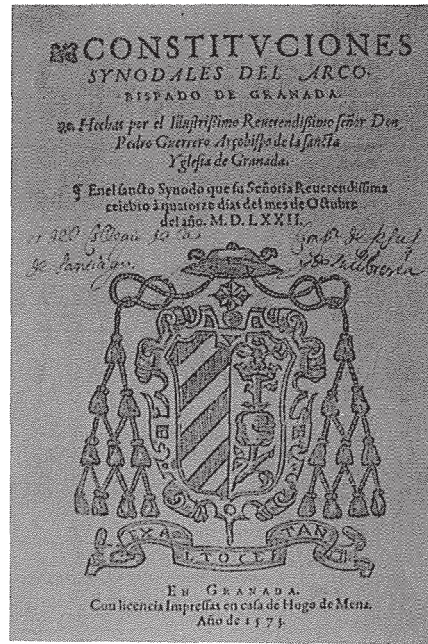 CONSTITVCIONES
SYNODALES DEL ARCO-
BISPADO DE GRANADA.
Hechas por el Illustrissimo Reuerendissimo señor Don
Pedro Guerrero Arçobispo de la sancta
Yglesia de Granada.
¶ En el sancto Synodo que su Señoria Reuerendissima
celebro à quatorze dias del mes de Octubre
del año. M. D. LXXII.
de Jesus
de
EXA LTOCEL TAN
EN GRANADA.
Con licencia Impressas en casa de Hugo de Mena.
Año de 1573.